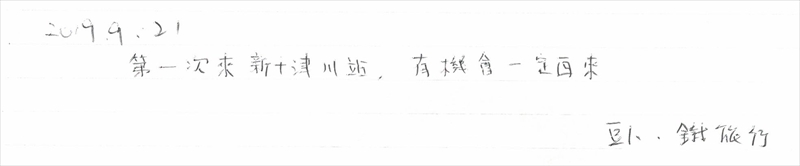 2019.9.21
第一次來新十津川站，有機會一定再來
鐵旅行